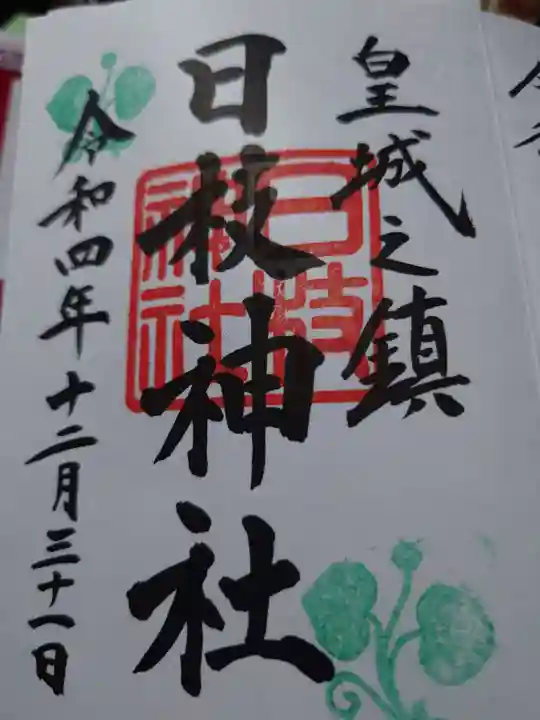 皇城之鎮
日枝神社
日枝神社
令和四年十二月三十一日
令和